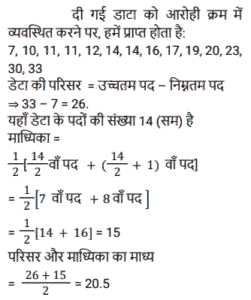 दी गई डाटा को आरोही क्रम में
व्यवस्थित करने पर, हमें प्राप्त होता है:
7, 10, 11, 11, 12, 14, 14, 16, 17, 19, 20, 23,
30, 33
डेटा की परिसर = उच्चतम पद – निम्नतम पद
⇒ 33 – 7 = 26.
यहाँ डेटा के पदों की संख्या 14 (सम) है
माध्यिका =
1/2[14/2 वाँ पद + (14/2 + 1) वाँ पद]
= 1/2[7 वाँ पद + 8 वाँ पद]
= 1/2[14 + 16] = 15
परिसर और माध्यिका का माध्य
= 26 + 15/2 = 20.5